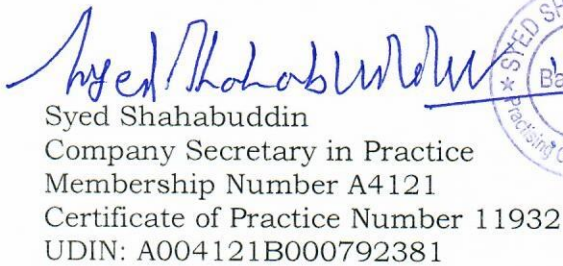 Syed Shahabuddin
Syed Shahabuddin
Company Secretary in Practice
Membership Number A4121
Certificate of Practice Number 11932
UDIN: A004121B000792381
SYED
Practising